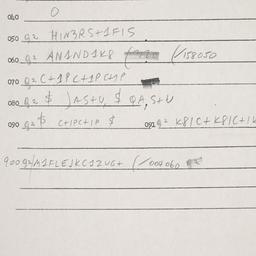 040 0
050 g2 HIN3RS+1F15
060 g2 AN1ND1K8 (/158050
070 g2 C+1PC+1PC+1P
080 g2 $ )AS+U, $ QA, S+U
090 g2 $ C+1PC+1P $ 091 g2 K81C+K81C+1K
900 g2 /004060